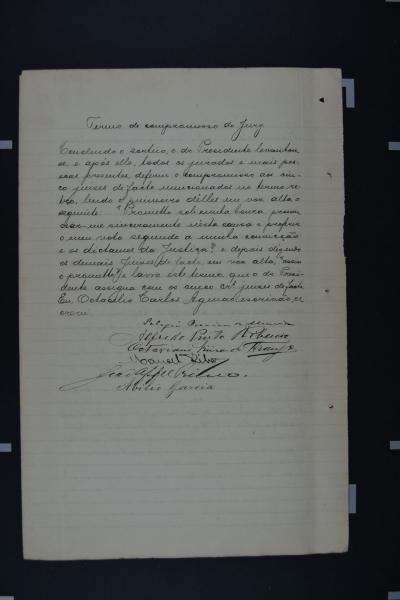 Termo de compromisso do Jury
Concluido o sorteio, o dr. Presidente levantou-
se e após elle, todos os jurados e mais pes-
soas presentes, deferiu o compromisso aos cin-
co juizes de facto mencionados no termo re-
tro, lendo o primeiro d'elles em voz alta o
seguinte: "Prometto sob minha honra, pronun-
ciar-me sinceramente nesta causa e proferir
o meu voto segundo a minha convicção
e os dictames da Justiça", e depois dizendo
os demais Juizes de facto, em voz alta, "assim
o prometto", e lavro este termo, que o dr. Presi-
dente assigna com os cinco juizes de facto.
Eu, Octacilio Carlos Aguiar, escrivão, es-
crevi.
Alfredo Pinto Ribeiro
Octaviano de Araujo
Manoel
José
Avelio Garcia